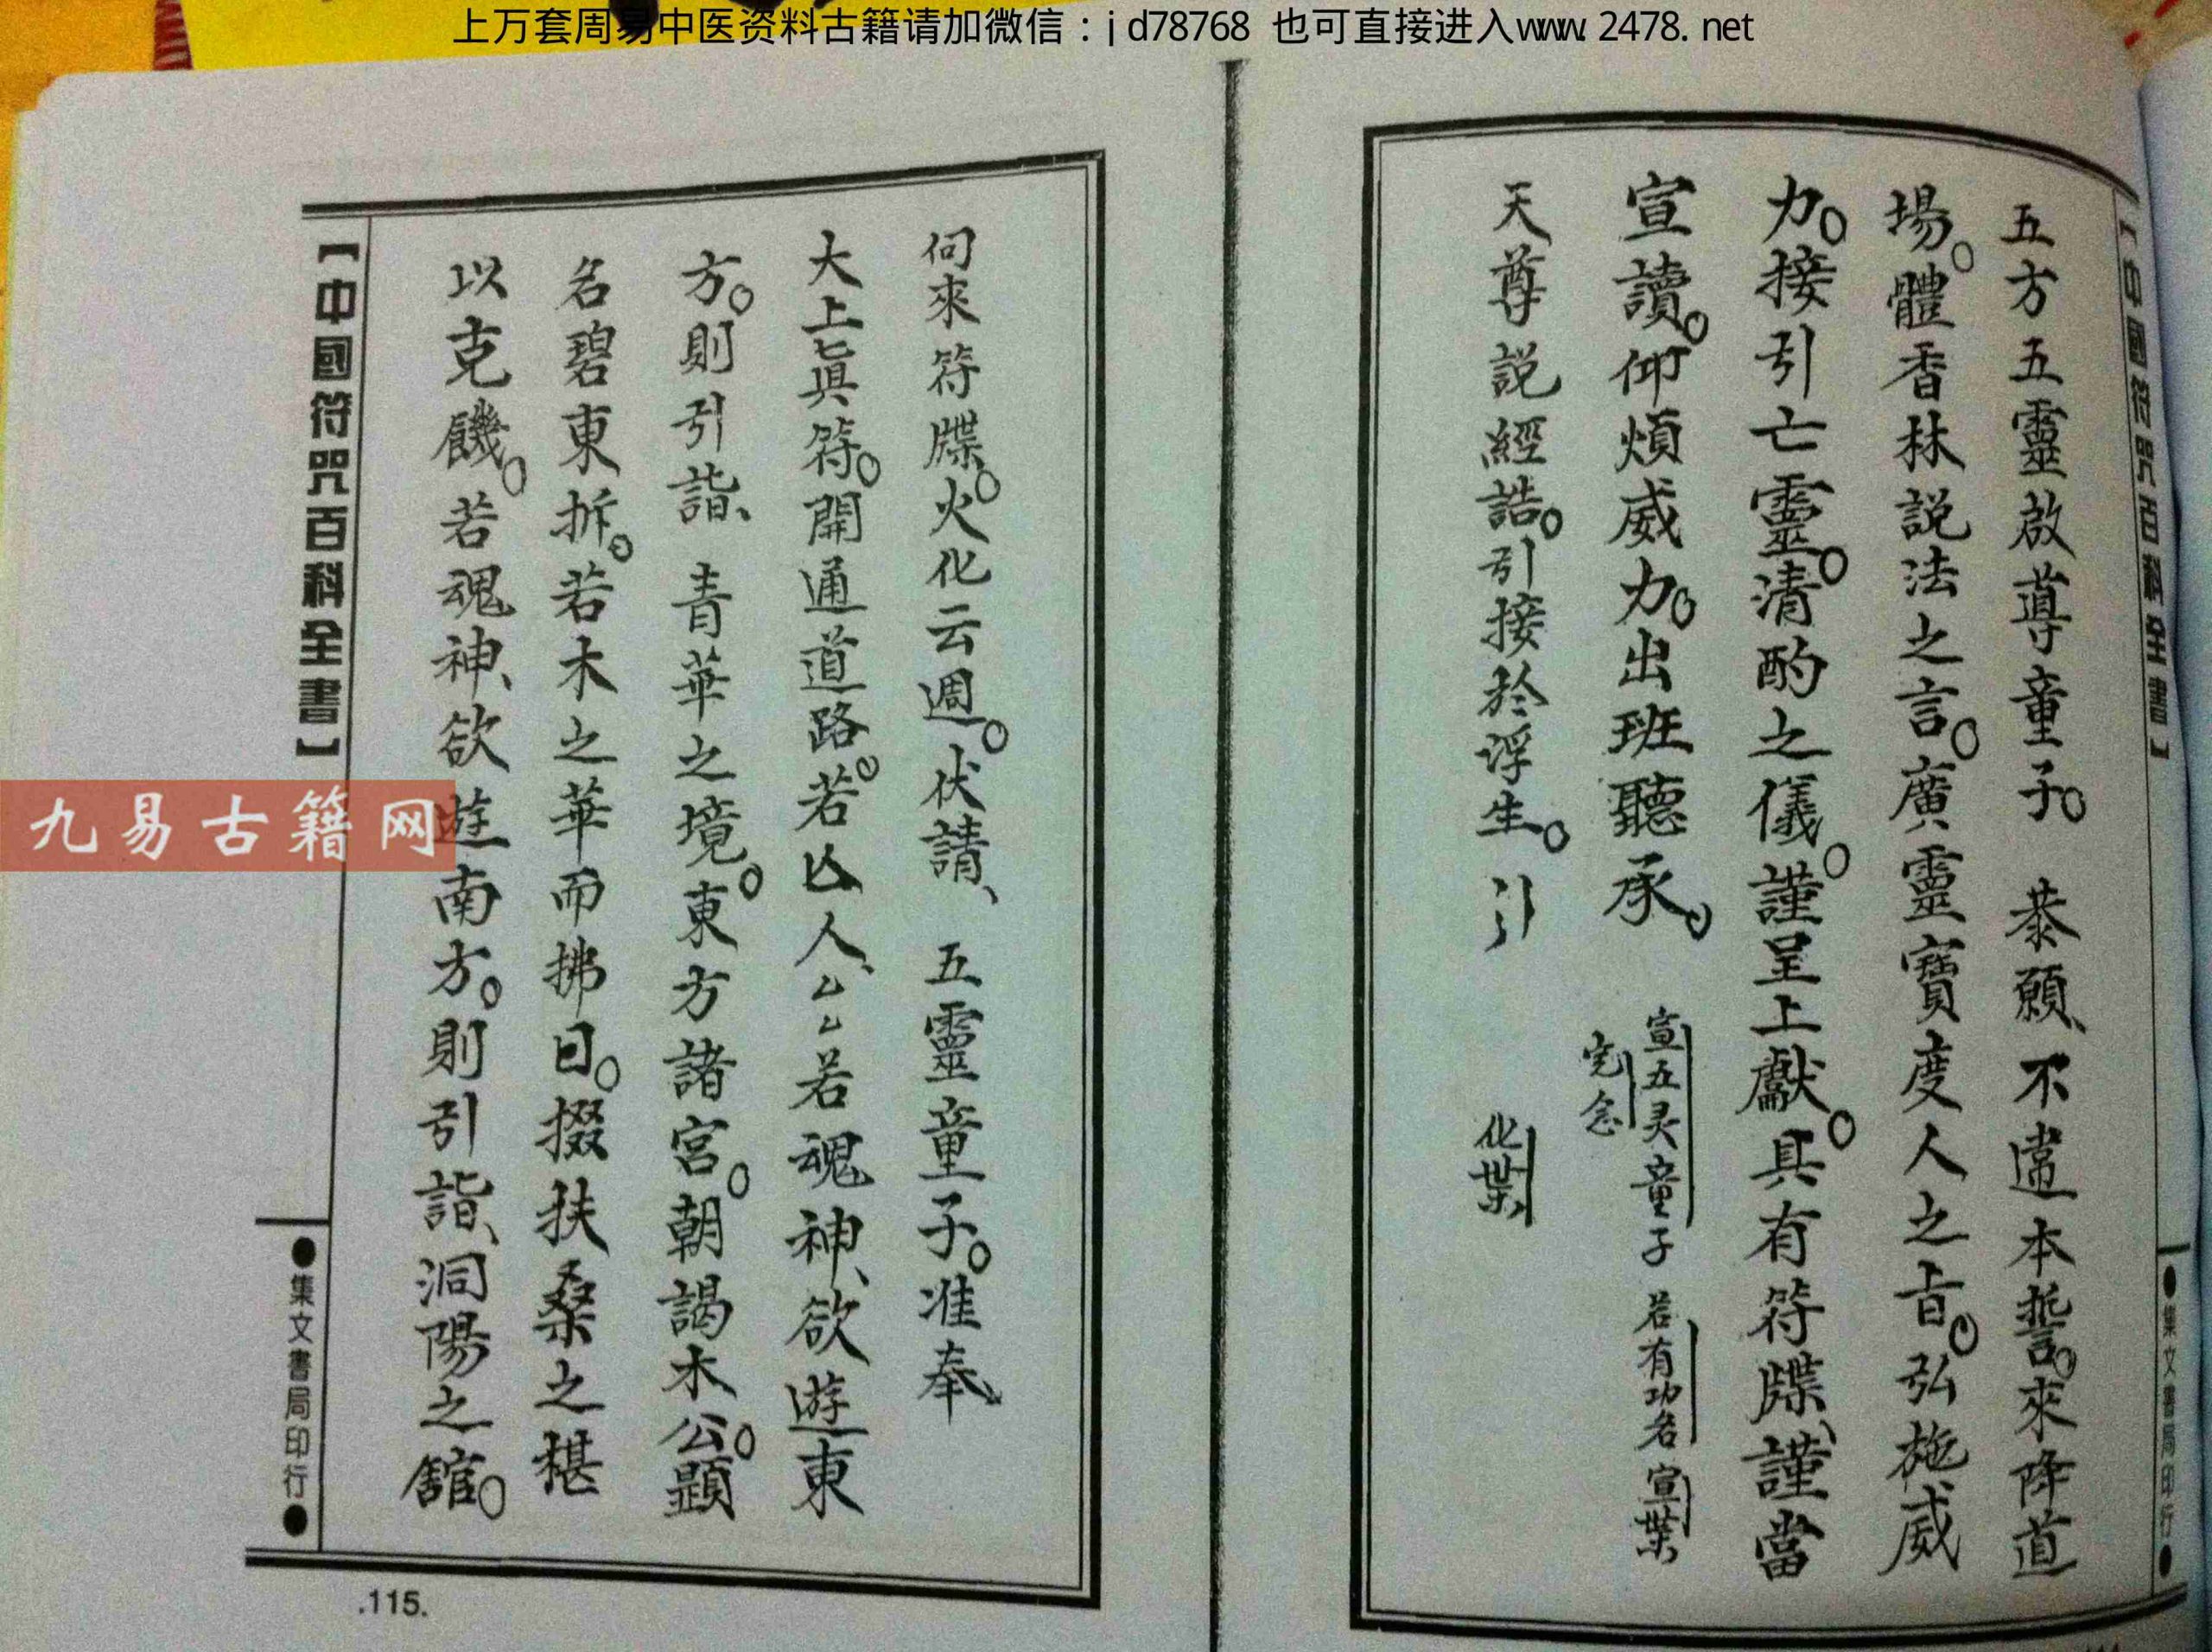 上万套周易中医资料古籍请加微信：jd78768 也可直接进入www.2478.net
【中國符咒百科全書】
●集文書局印行●
五方五靈啟導童子。 恭願、不違本誓。來降道
場。體香林說法之言。廣靈寶度人之旨。弘施威
力。接引亡靈。清酌之儀。謹呈上獻。具有符牒、謹當
宣讀。仰煩威力。出班聽承。
宣五灵童子 若有功名 宣葉
完念
天尊說經誥。引接於浮生。引
化葉
伺來符牒。火化云週。伏請、 五靈童子。准奉
大上眞符。開通道路。若亡人、厶厶若魂神、欲遊東
方。則引詣、 青華之境。東方諸宮。朝謁木公。顯
名碧東拆。若木之華而拂日。掇扶桑之椹
以克饑。若魂神、欲遊南方。則引詣、洞陽之舘。
【中國符咒百科全書】
●集文書局印行●
九易古籍网
.115.